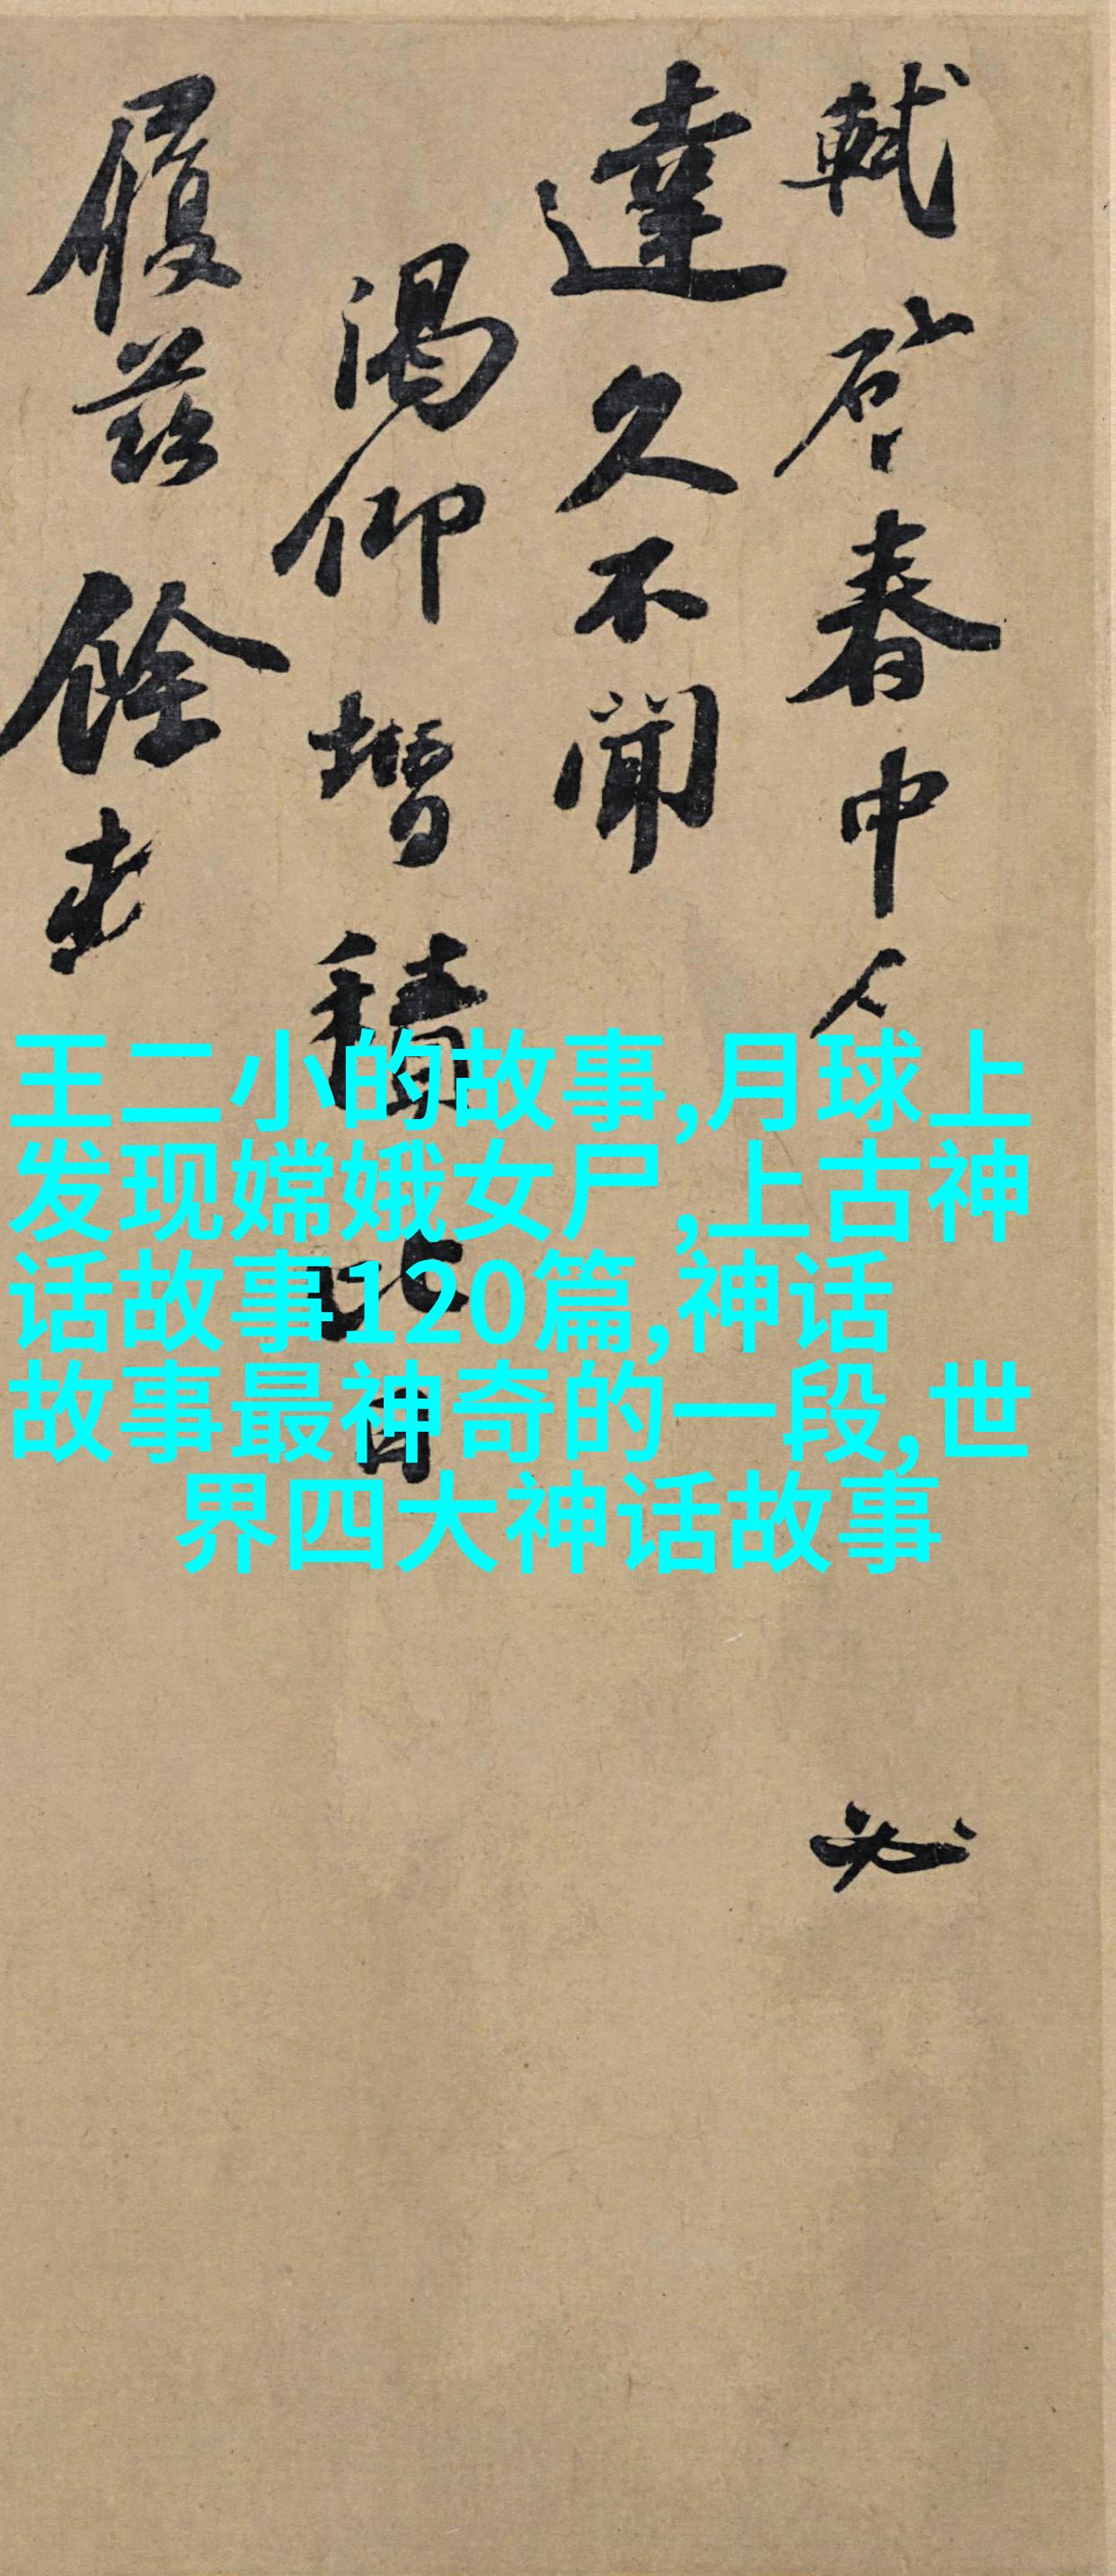 軾啓春中人必
達久不聞
渴仰增積比日
履兹餘
王二小的故事,月球上
发现嫦娥女尸,上古神
话故事120篇,神话
故事最神奇的一段,世
界四大神话故事